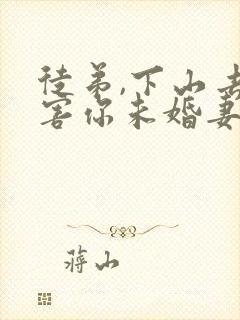 徒弟,下山去
害你未婚妻
蒋山